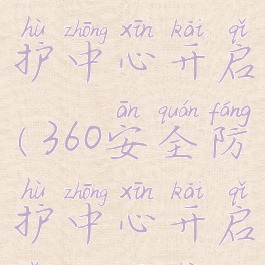 hù zhōng xīn kāi qǐ
护中心开启
ān quán fáng
(360安全防
hù zhōng xīn kāi qǐ
护中心开启